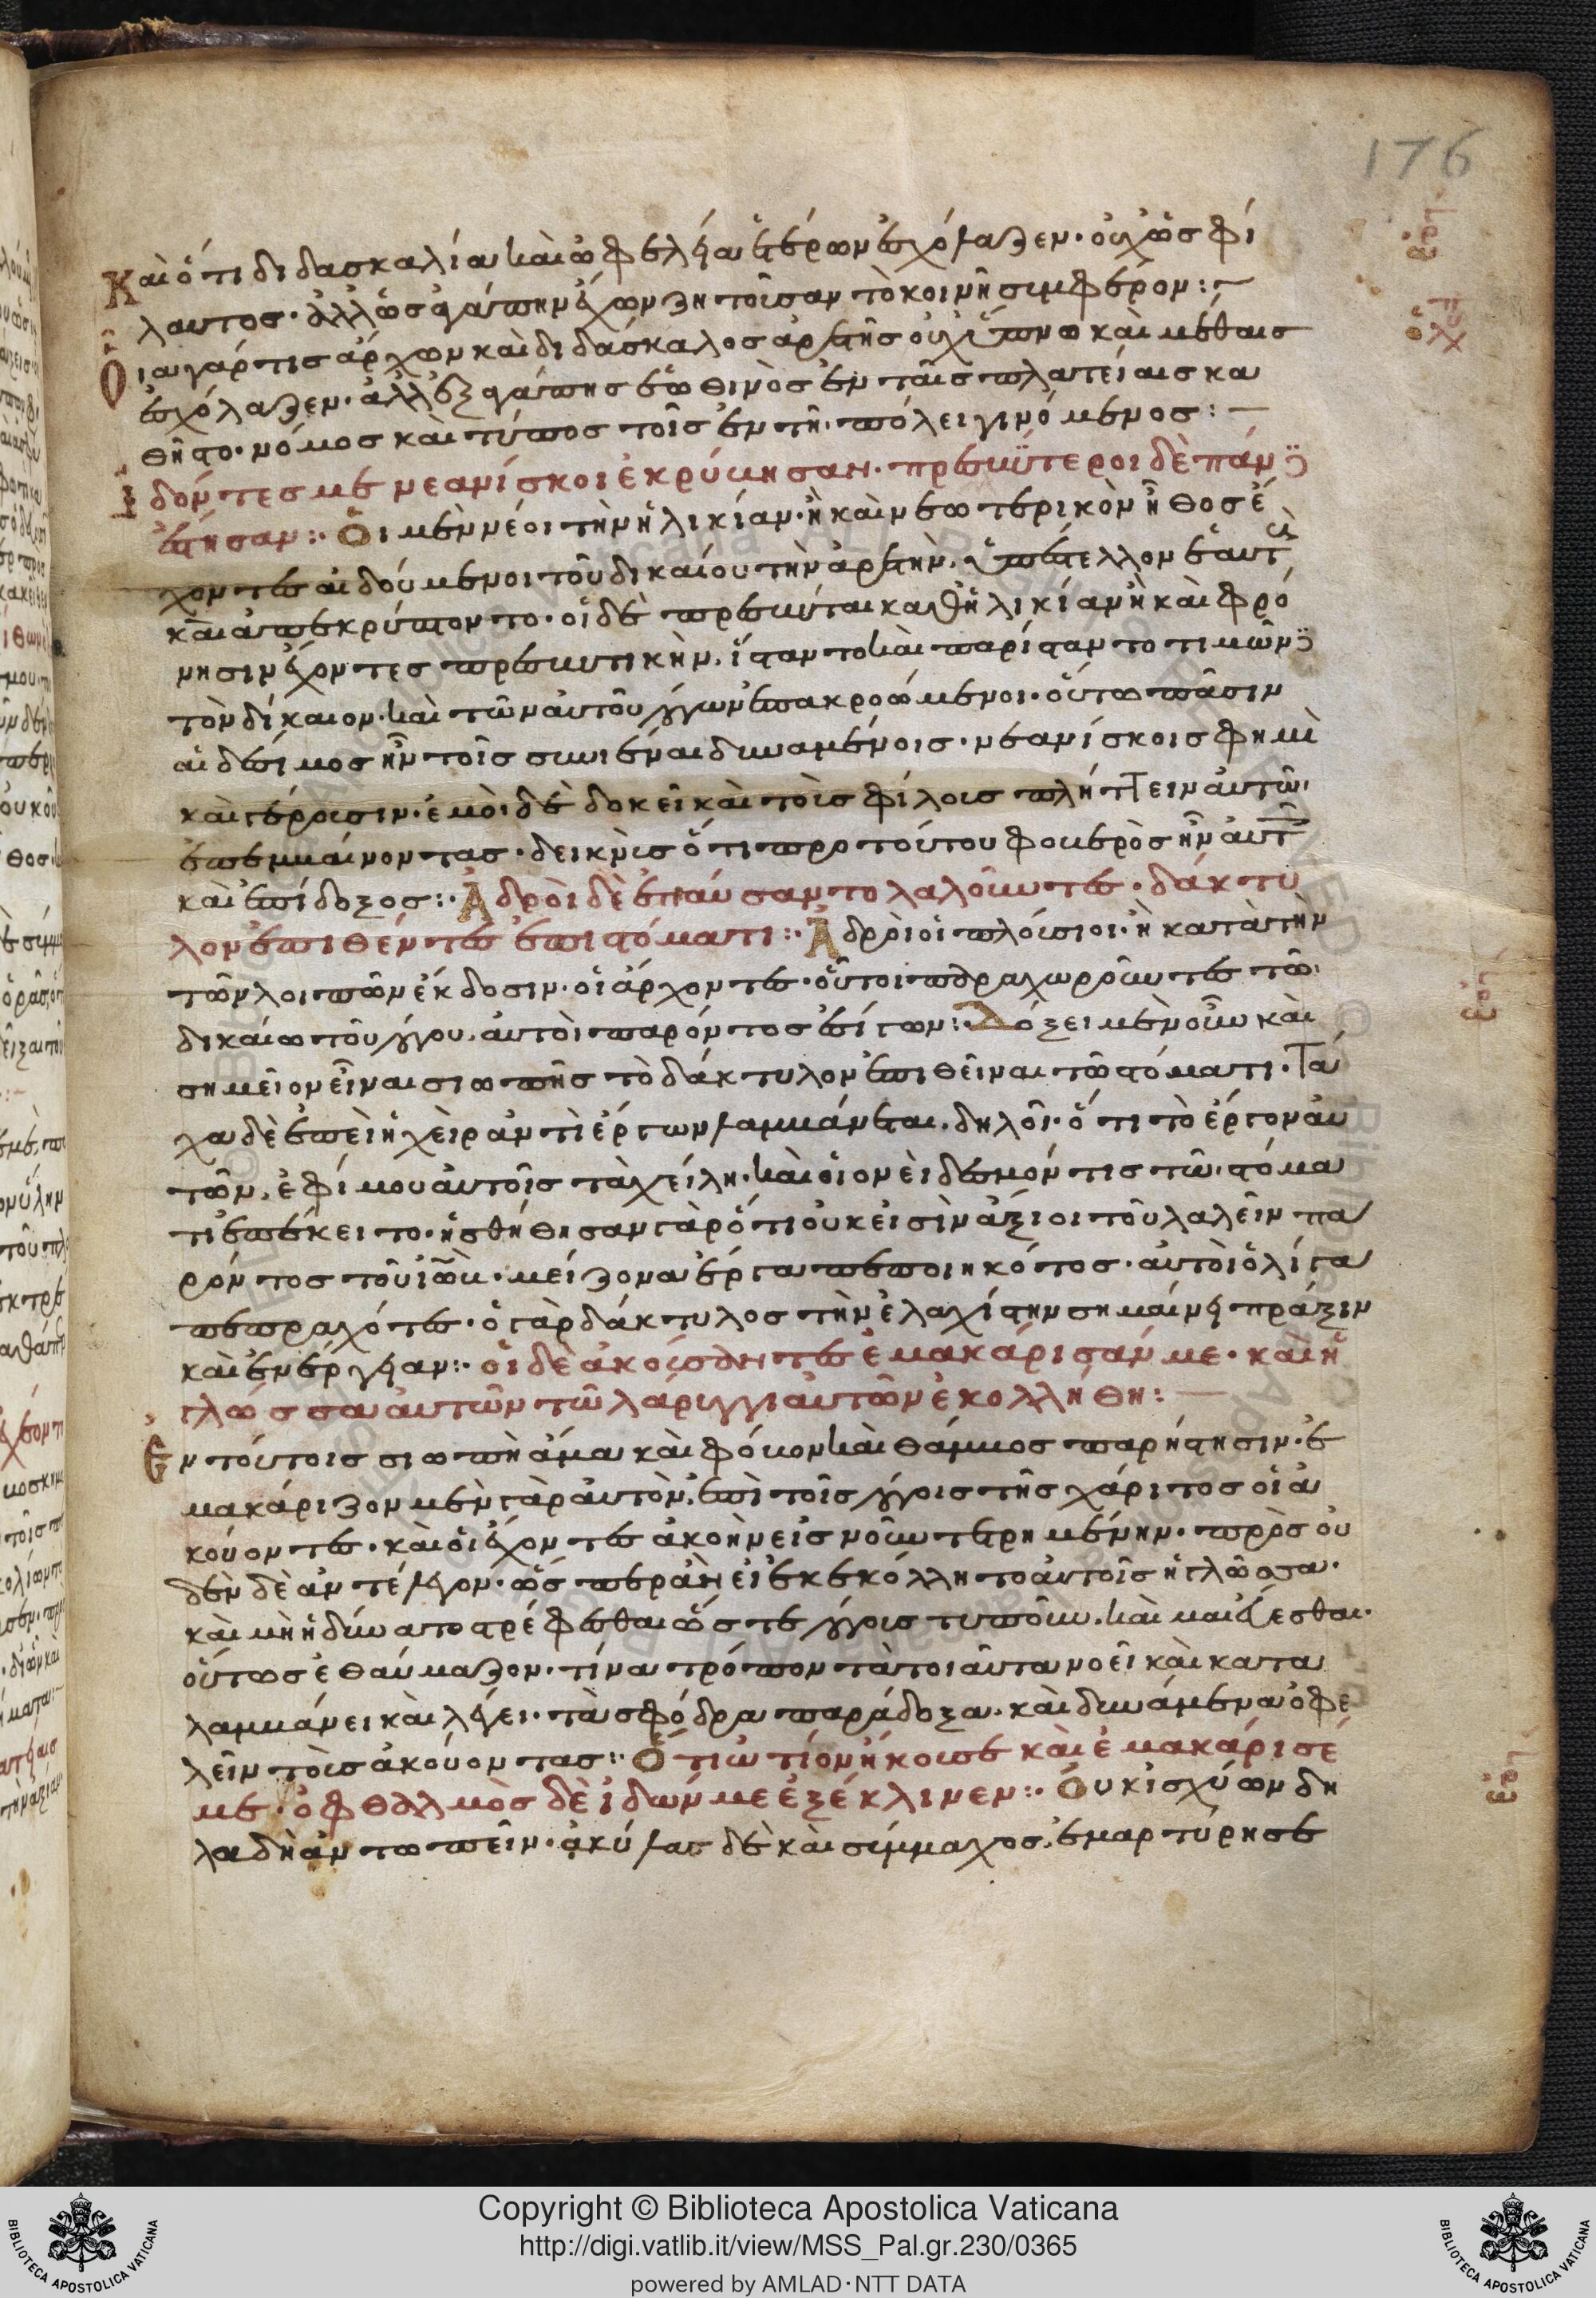 176
Καὶ ὅτι διδασκαλία καὶ ὠφελεία ἑτέρων ἐσχόλαζεν· οὐχ ὡς φί
λαυτος· ἀλλ' ὡς ἀγάπην ἔχων ζητοῦσαν τὸ κοινῆ συμφέρον:
Οἷα γάρ τις ἄρχων καὶ διδάσκαλος ἀρετῆς οὐχ ὕπνω καὶ μέθαις
ἐσχόλαζεν· ἀλλ' ἐξ ἀγάπης ἑωθινὸς ἐν ταῖς πλατείαις κα
θῆστο· νόμος καὶ τύπος τοῖς ἐν τῆ πόλει γινόμενος:
Ἰδόντες με νεανίσκοι ἐκρύβησαν· πρεσβύτεροι δὲ πάντες
ἔστησαν: Οἱ μὲν νέοι τὴν ἡλικίαν· ἢ καὶ νεωτερικὸν ἦθος ἔ
χοντες αἰδούμενοι τοῦ δικαίου τὴν ἀρετὴν· ὑπέστελλον ἑαυτοὺς
καὶ ἀπεκρύπτοντο· οἱ δὲ πρεσβύται καθ' ἡλικίαν ἢ καὶ φρό
νησιν ἔχοντες πρεσβυτικὴν, ἵσταντο καὶ παρίσταντο τιμῶντες
τὸν δίκαιον· καὶ τῶν αὐτοῦ λόγων ἐπακροώμενοι· οὕτω πᾶσιν
αἰδέσιμος ἦν τοῖς συνιέναι δυναμένοις· νεανίσκοις φημὶ
καὶ γέρουσιν· ἐμοὶ δὲ δοκεῖ καὶ τοὺς φίλοις πλήττειν αὐτῶ
ἐπεμβαίνοντας· δεικνὺς ὅτι πρὸ τούτου φοβερὸς ἦν αὐτοῖς
καὶ ἐπίδοξος: Ἁδροὶ δὲ ἐπαύσαντο λαλοῦντες· δάκτυ
λον ἐπιθέντες ἐπὶ στόματι: Ἁδροὶ οἱ πλούσιοι· ἢ κατὰ τὴν
τῶν λοιπῶν ἔκδοσιν· οἱ ἄρχοντες· οὗτοι παραχωροῦντες τῶ
δικαίω τοῦ λόγου, αὐτοὶ παρόντος ἐσίγων: Δόξει μὲν οὖν καὶ
σημεῖον εἶναι σιωπῆς τὸ δάκτυλον ἐπιθεῖναι τῶ στόματι· Τά
χα δὲ ἐπεὶ ἡ χεὶρ ἀντὶ ἔργων λαμβάνεται, δηλοῖ· ὅτι τὸ ἔργον αὐ
τῶν, ἐφίμου αὐτοῖς τὰ χείλη· καὶ οἱονεὶ δεσμόν τις τῶ στόμα
τι ἐπέκειτο· ἠσθήθησαν γὰρ ὅτι οὐκ εἰσὶν ἄξιοι τοῦ λαλεῖν πα
ρόντος τοῦ ἰώβ· μείζονα ἔργα πεποιηκότος· αὐτοὶ ὀλίγα
πεπραχότες· ὁ γὰρ δάκτυλος τὴν ἐλαχίστην σημαίνει πράξιν
καὶ ἐνέργειαν: οἱ δὲ ἀκούσαντες ἐμακάρισάν με· καὶ ἡ
γλῶσσα αὐτῶν τῶ λάρυγγι αὐτῶν ἐκολλήθη:
Ἐν τούτοις σιωπὴ ἅμα καὶ φόβον καὶ θάμβος παρίστησιν· ἐ
μακάριζον μὲν γὰρ αὐτὸν, ἐπὶ τοῖς λόγοις τῆς χάριτος οἱ ἀ
κούοντες· καὶ οἱ ἔχοντες ἀκοὴν εἰς νοῦν τετρημένην· πρὸς οὐ
δὲν δὲ ἀντέλεγον· ὡσπερὰν εἰ ἐκεκόλλητο αὐτοῖς ἡ γλῶσσα·
καὶ μὴ ἠδύνατο στρέφεσθαι ὥστε λόγοις τυποῦν, καὶ μαιεύεσθαι·
οὕτως ἐθαύμαζον· τίνα τρόπον τὰ τοιαῦτα νοεῖ καὶ κατα
λαμβάνει καὶ λέγει· τὰ σφόδρα παράδοξα· καὶ δυνάμενα ὀφε
λεῖν τοὺς ἀκούοντας: Ὅτι ὠτίον ἤκουσε καὶ ἐμακάρισέ
με· ὀφθαλμὸς δὲ ἰδών με ἐξέκλινεν: Οὐκ ἰσχύων δη
λαδὴ ἀντωπεῖν· ἀκύλας δὲ καὶ σύμμαχος, ἐμαρτύρησε
Copyright © Biblioteca Apostolica Vaticana
http://digi.vatlib.it/view/MSS_Pal.gr.230/0365
powered by AMLAD·NTT DATA
BIBLIOTECA APOSTOLICA VATICANA
BIBLIOTECA APOSTOLICA VATICANA